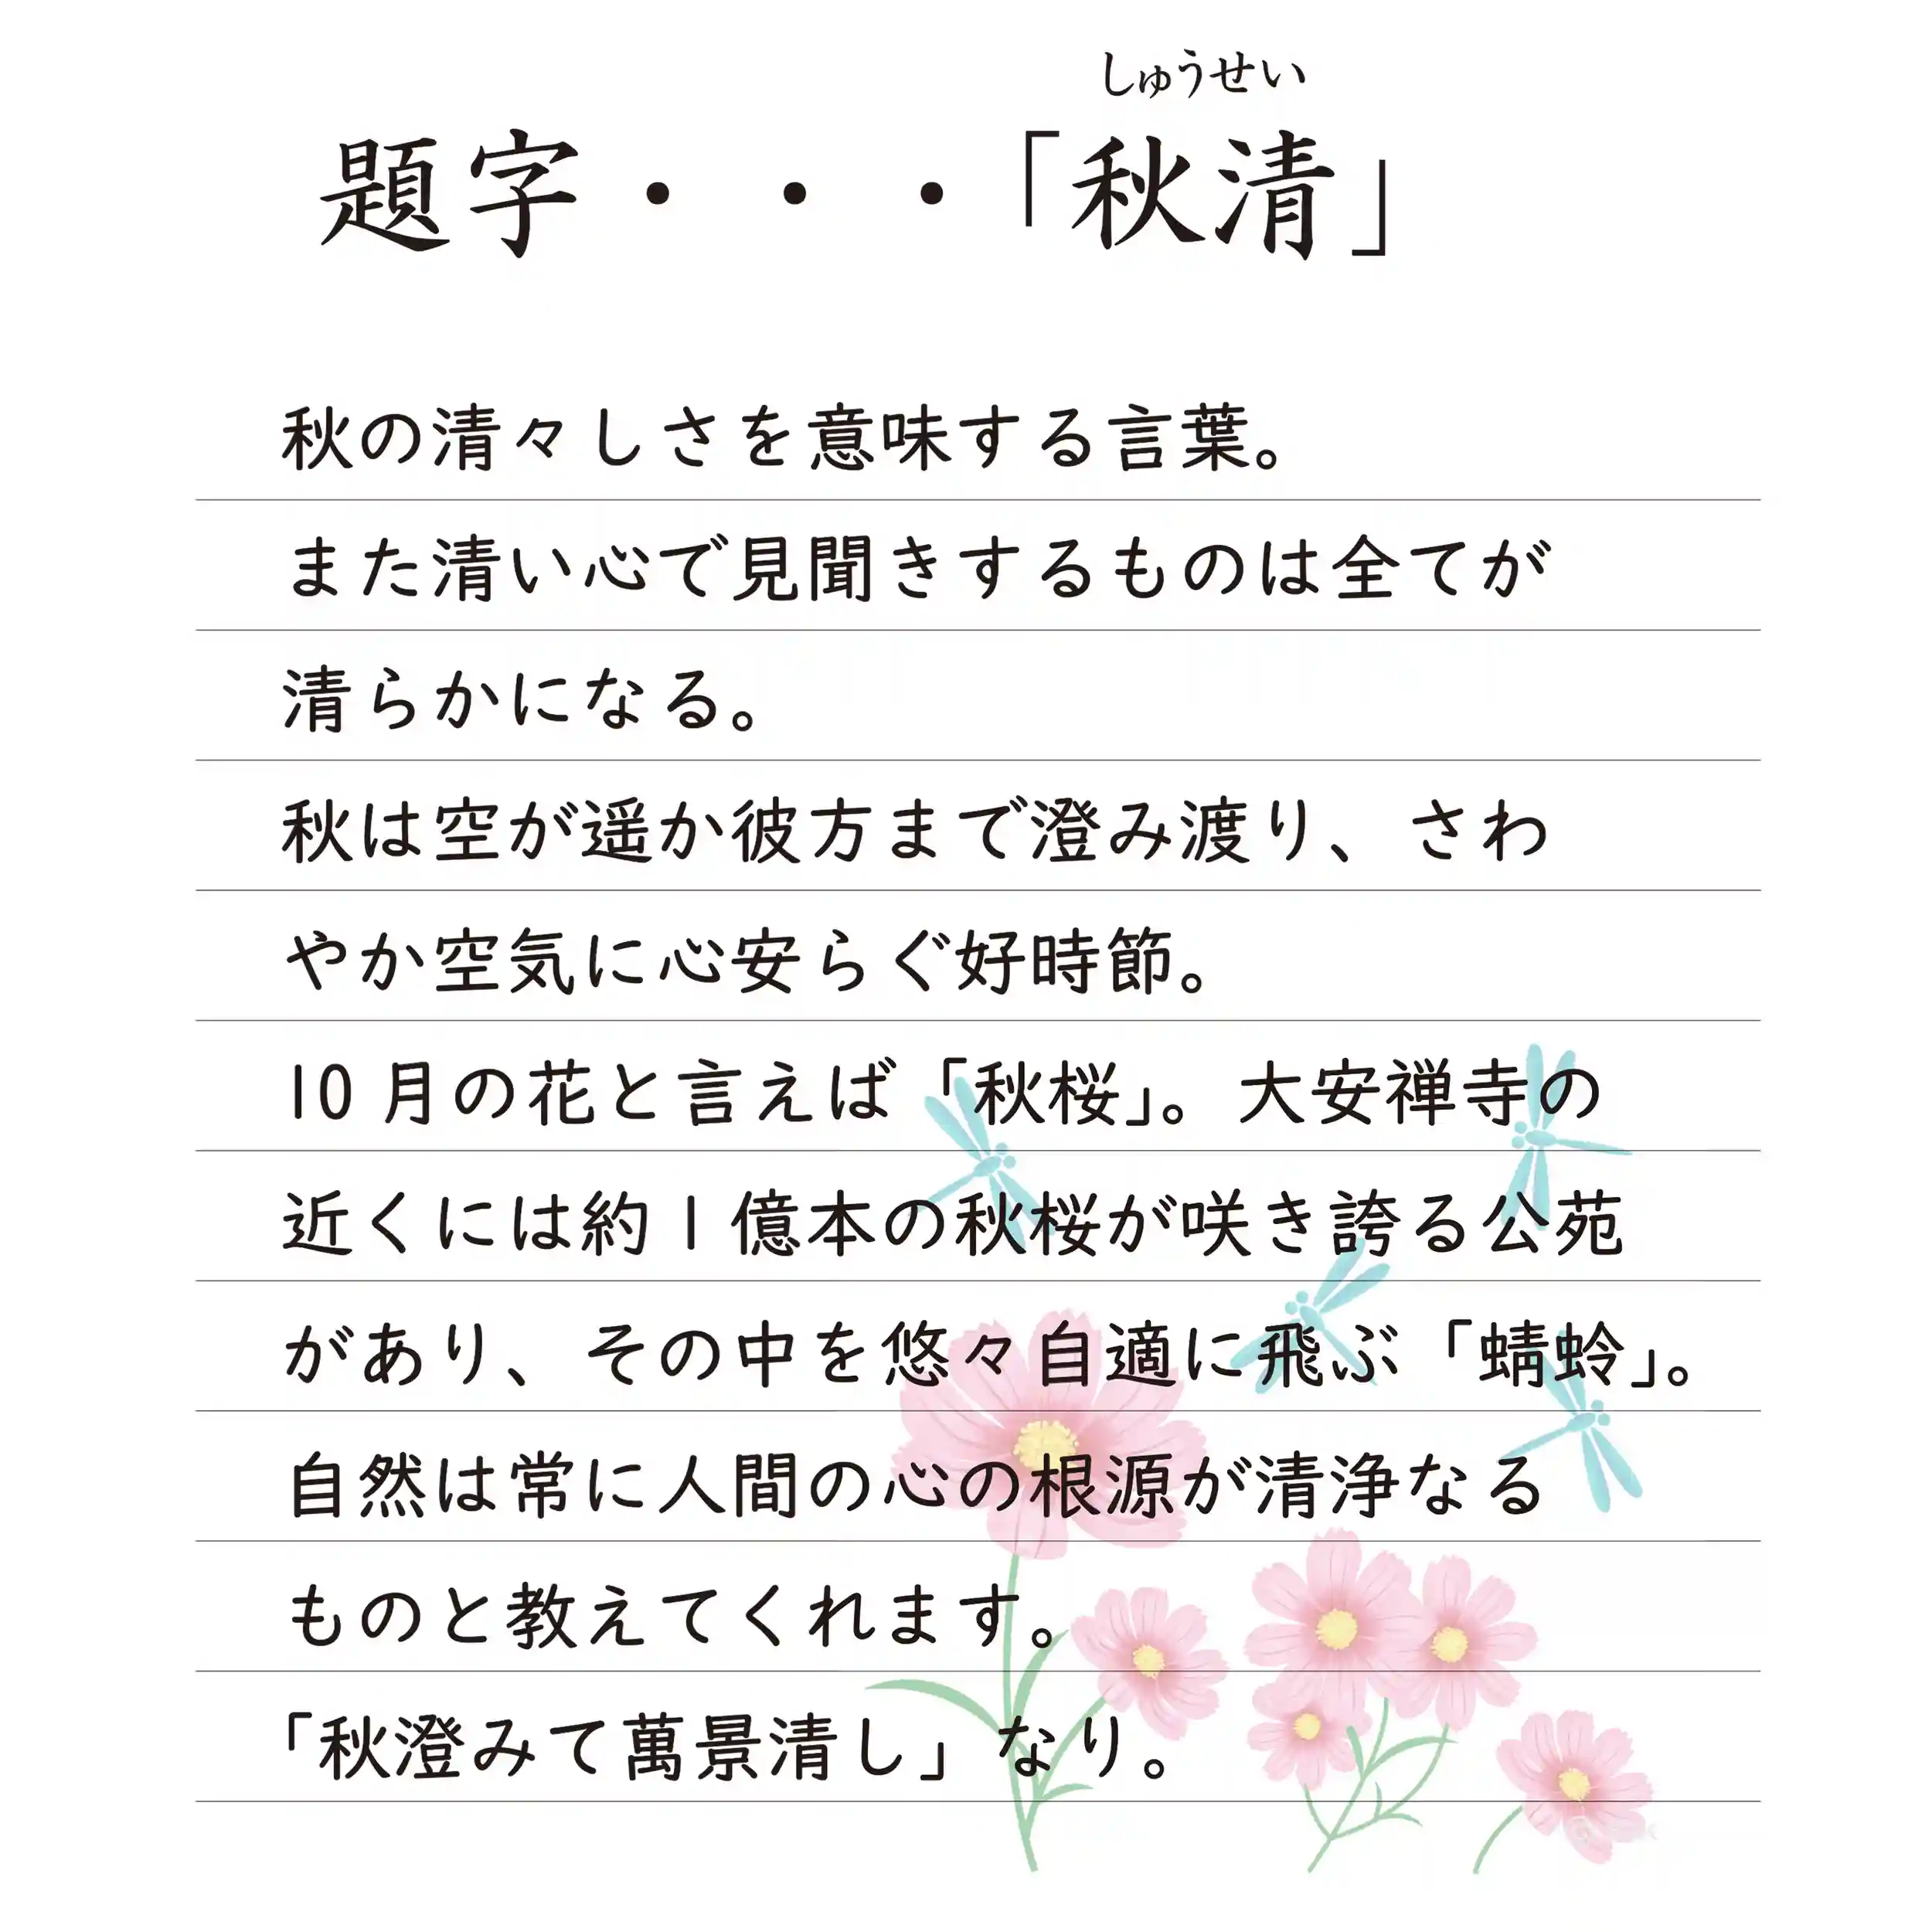 しゅうせい
題字・・・「秋清」
秋の清々しさを意味する言葉。
また清い心で見聞きするものは全てが
清らかになる。
秋は空が遥か彼方まで澄み渡り、さわ
やか空気に心安らぐ好時節。
10月の花と言えば「秋桜」。大安禅寺の
近くには約1億本の秋桜が咲き誇る公苑
があり、その中を悠々自適に飛ぶ「蜻蛉」。
自然は常に人間の心の根源が清浄なる
ものと教えてくれます。
「秋澄みて萬景清し」なり。